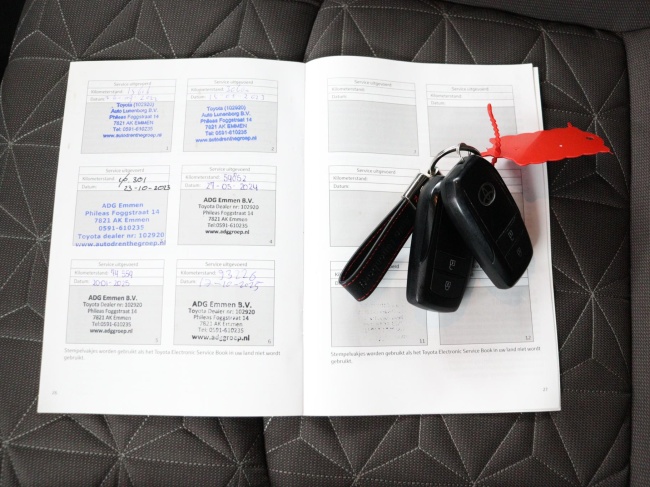 Service uitgevoerd
Kilometerstand:
Datum:
Toyota (102920)
Auto Lunenborg B.V.
Phileas Foggstraat 14
7821 AK EMMEN
Tel: 0591-610235
www.autodrenthegroep.nl
1
Service uitgevoerd
Kilometerstand:
Datum:
Toyota (102920)
Auto Lunenborg B.V.
Phileas Foggstraat 14
7821 AK EMMEN
Tel: 0591-610235
www.autodrenthegroep.nl
2
Service uitgevoerd
Kilometerstand: 301
Datum: 23-10-2023
ADG Emmen
Phileas Foggstraat 14
7821 AK Emmen
0591-610235
Toyota dealer nr: 102920
www.autodrenthegroep.nl
Service uitgevoerd
Kilometerstand:
Datum: 29-05-2024
ADG Emmen B.V.
Toyota dealer nr: 102920
Phileas Foggstraat 14
7821 AK Emmen
Tel:0591-610235
www.adggroep.nl
4
Service uitgevoerd
Kilometerstand:
Datum: 2025
ADG Emmen B.V.
Toyota dealer nr: 102920
Phileas Foggstraat 14
7821 AK Emmen
Tel:0591-610235
www.adggroep.nl
5
Service uitgevoerd
Kilometerstand:
Datum: 2025
ADG Emmen B.V.
Toyota dealer nr: 102920
Phileas Foggstraat 14
7821 AK Emmen
Tel: 0591-610235
www.adggroep.nl
6
Stempelvakjes worden gebruikt als het Toyota Electronic Service Book in uw land niet wordt
gebruikt.
Service uitgevoerd
Kilometerstand:
Datum:
Service uitgevoerd
Service uitgevoerd
Kilometerstand:
Datum:
Service uitgevoerd
Kilometerstand:
Datum:
11
12
Stempelvakjes worden gebruikt als het Toyota Electronic Service Book in uw land niet wordt
gebruikt.